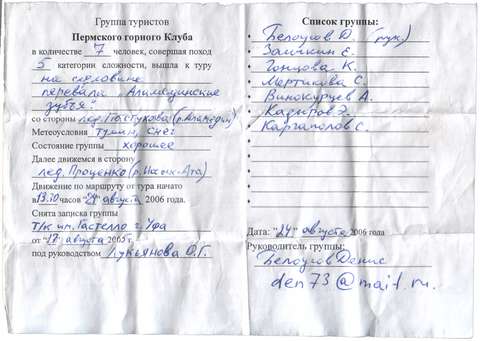 Группа туристов
Пермского горного Клуба
в количестве 7 человек, совершая поход
5 категории сложности, вышла к туру
на седловине
перевала "Аламединские
зубья"
со стороны лед. Постухова (р. Аламедин)
Метеоусловия туман, снег
Состояние группы хорошее
Далее движемся в сторону
лед. Проценко (р. Иссык-Ата)
Движение по маршруту от тура начато
в 13:30 часов "24" августа 2006 года.
Снята записка группы
Т/к им. Гастелло г. Уфа
от 17 августа 2005 г.
под руководством Лукьянова О.Г.
Список группы:
• Белоусов Д. (рук.)
• Заичкин Е.
• Гонцова К.
• Мартюкова С.
• Винокурцев А.
• Кадиров Э.
• Каргаполов С.
Дата: "24" августа 2006 года
Руководитель группы:
Белоусов Денис
den73@mail.ru.